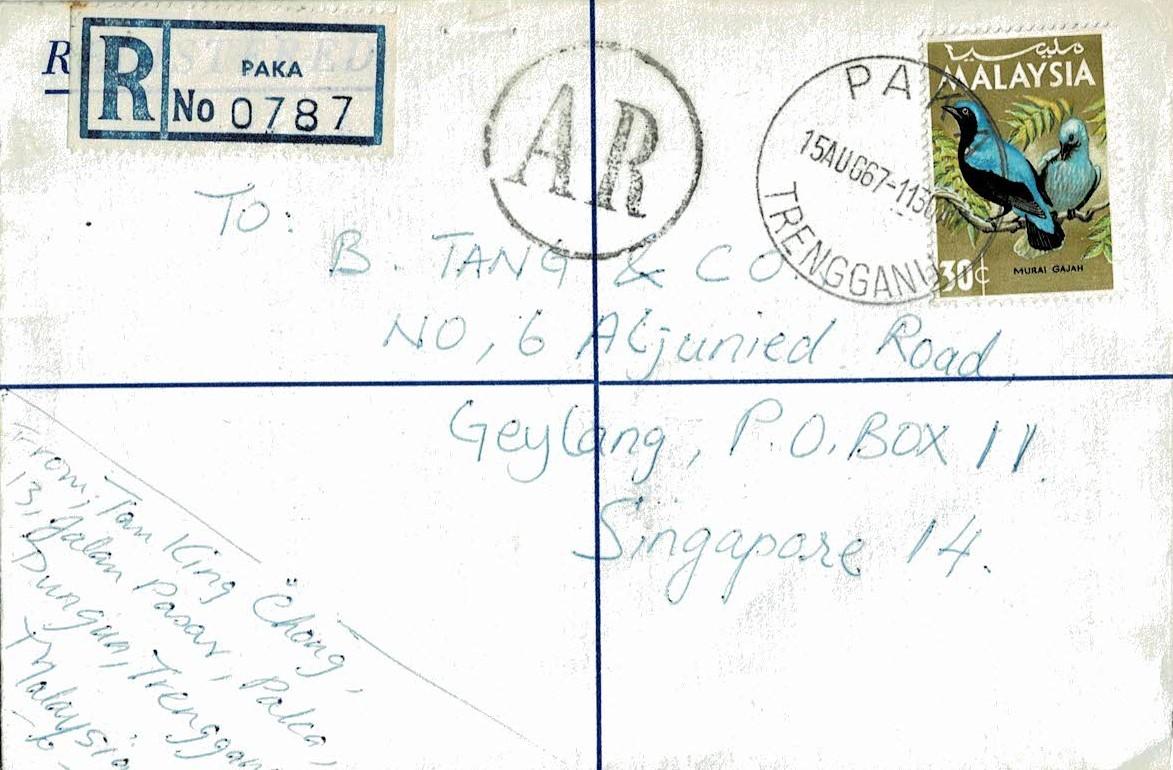 REGISTERED
R
PAKA
No 0787
AR
PAKA
15AUG67-1130
TRENGGANU
مليسيا
MALAYSIA
30c
MURAI GAJAH
TO:
B. TANG & CO
NO, 6 Aljunied Road,
Geylang, P.O. BOX 11.
Singapore 14.
From; Tan King Chong,
13, Jalan Pasar, Paka,
Dungun, Trengganu
Malaysia